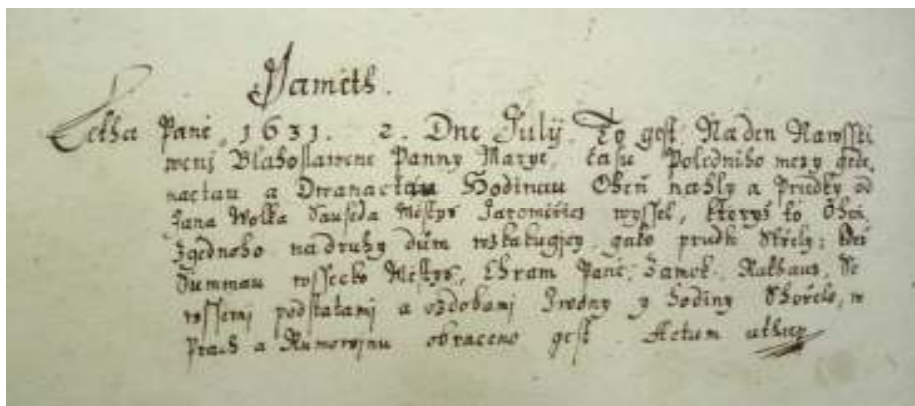 Paměth.
Letha Páně 1631. 2. Dne Julij. To gest Na den Nawsstí
wenj Blahoslawene Panny Marye, času Poledního mezy gede
nactau a Dwanactau Hodinau Oheň nahly a Prudky od
Jana Wolka Sauseda Městys Jaroměřics wyssel, kteryž to Oheň
Zgednoho na druhy dům wskakugjcy gako prudké Střely:
Summau wssecko Městys, Chram Páně, Zamek, Rathaus, Se
wssemj podstatami a ozdobami Hodiny Shořelo, w
Prach a Rumowjnu obraceno gest. Actum